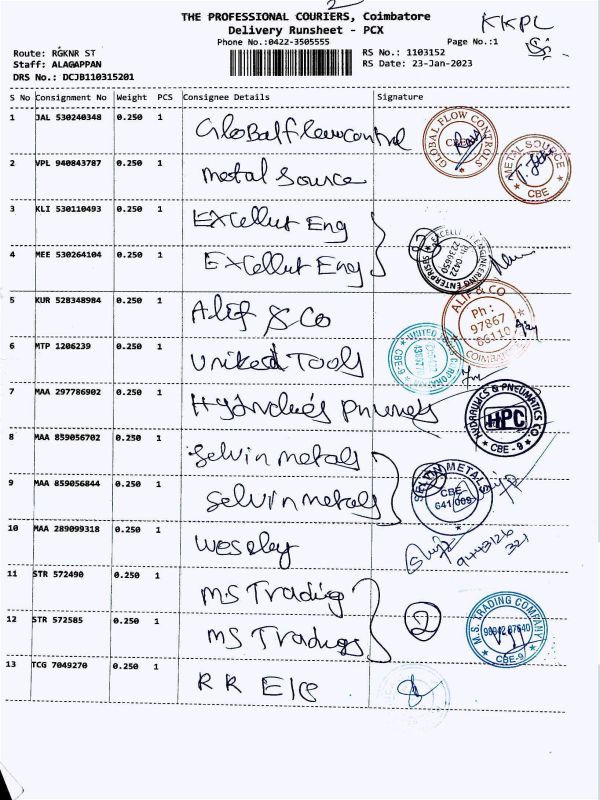 THE PROFESSIONAL COURIERS, Coimbatore
KKPL
Delivery Runsheet - PCX
Phone No.:0422-3505555
Page No.:1
Route: RGKNR ST
RS No.: 1103152
Staff: ALAGAPPAN
RS Date: 23-Jan-2023
DRS No.: DCJB110315201
S No Consignment No Weight PCS Consignee Details Signature
1 JAL 530240348 0.250 1 Globalflowcontrol GLOBAL FLOW CONTROLS CBE
2 VPL 940843787 0.250 1 metal source METAL SOURCE CBE
3 KLI 530110493 0.250 1 EXcellut Eng
4 MEE 530264104 0.250 1 EXcellut Eng 2 ENGINEERING ENTERPRISES Ph: 0422
5 KUR 528348984 0.250 1 Alif & Co ALIF & CO Ph: 97867 66110
6 MTP 1206239 0.250 1 United Tools UNITED CBE
7 MAA 297786902 0.250 1 HYDRAULICS & PNEUMATICS CO HPC CBE - 9
8 MAA 859056702 0.250 1 Selvin metals
9 MAA 859056844 0.250 1 Selvin metals METAL CBE 641 009
10 MAA 289099318 0.250 1 wessley 94443126 321
11 STR 572490 0.250 1 MS Trading
12 STR 572585 0.250 1 MS Tradings 2 M.S. TRADING COMPANY CBE-9
13 TCG 7049270 0.250 1 R R Ele